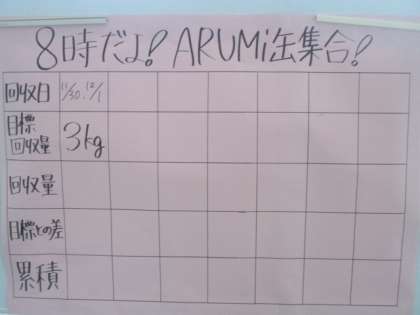 8時だよ!ARUMi缶集合!
回収日 11/30.12/1
目標
回収量 3kg
回収量
目標との差
累積